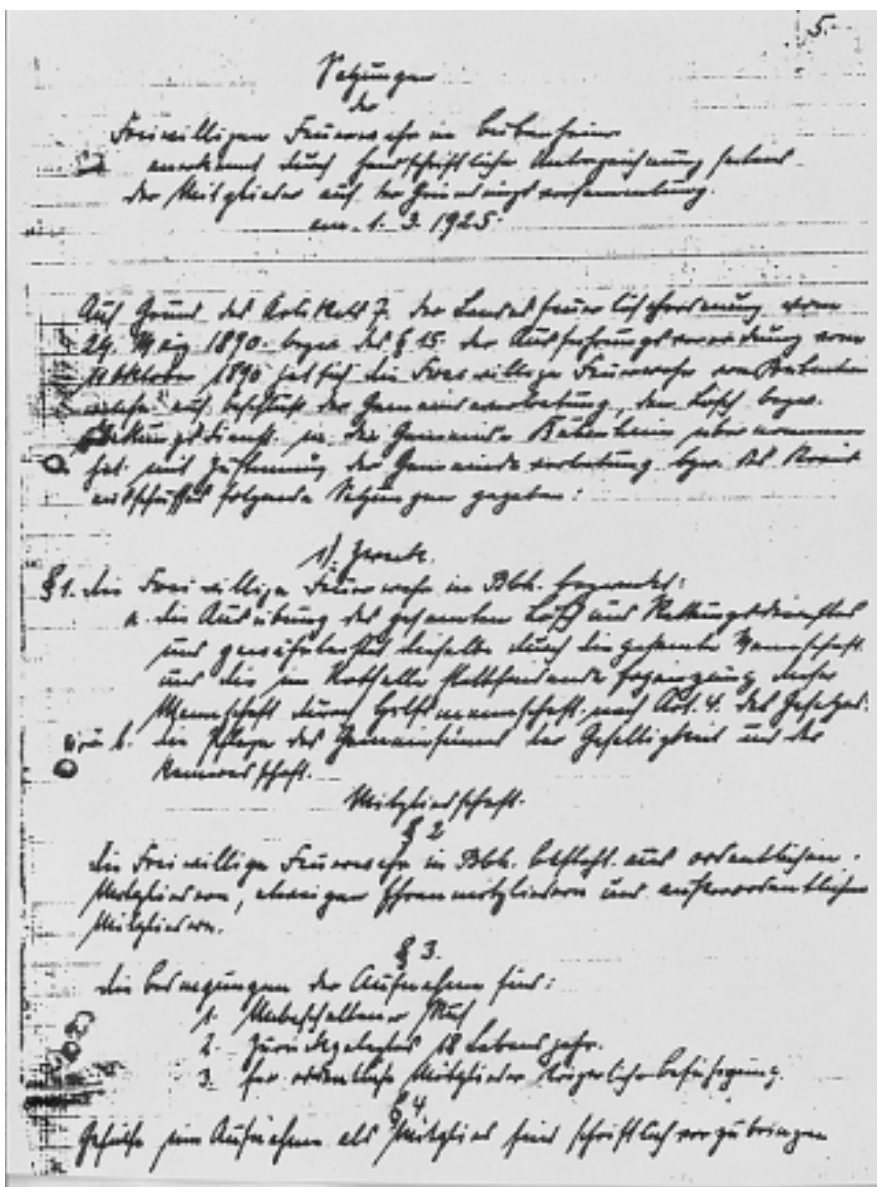 5.
Satzungen
der
Freiwilligen Feuerwehr in Bubenheim
anerkannt durch handschriftliche Unterzeichnung seitens
der Mitglieder auf der Gründungsversammlung.
am. 1. 3. 1925.
Auf Grund des Artikels 7. der Landesfeuerlöschordnung vom
29. März 1890. bezw. des § 15. der Ausführungsverordnung vom
11 Oktober 1890 hat sich die Freiwillige Feuerwehr von Bubenheim
welche auf Beschluß der Gemeindevertretung, den Lösch bezw.
Rettungsdienst in der Gemeinde Bubenheim übernommen
hat mit Zustimmung der Gemeindevertretung bzw. des Kreis
ausschusses folgende Satzungen gegeben:
1). Zweck.
§ 1. die Freiwillige Feuerwehr in Bbh. bezweckt:
a. die Ausübung des gesamten Lösch und Rettungsdienstes
und gewährleistet dieselbe durch die gesamte Mannschaft
und die im Notfalle stattfindende Ergänzung dieser
Mannschaft durch Hilfsmannschaft nach Art. 4. des Gesetzes.
b. die Pflege des Gemeinsinns der Geselligkeit und der
Kameradschaft.
Mitgliedschaft.
§ 2
die Freiwillige Feuerwehr in Bbh. besteht aus ordentlichen
Mitgliedern, etwaigen Ehrenmitgliedern und außerordentlichen
Mitgliedern.
§ 3.
die Bedingungen der Aufnahme sind:
1. Unbescholtener Ruf
2. Zurückgelegtes 18 Lebensjahr.
3. für ordentliche Mitglieder körperliche Befähigung.
§ 4
Gesuche um Aufnahme als Mitglied sind schriftlich vorzubringen